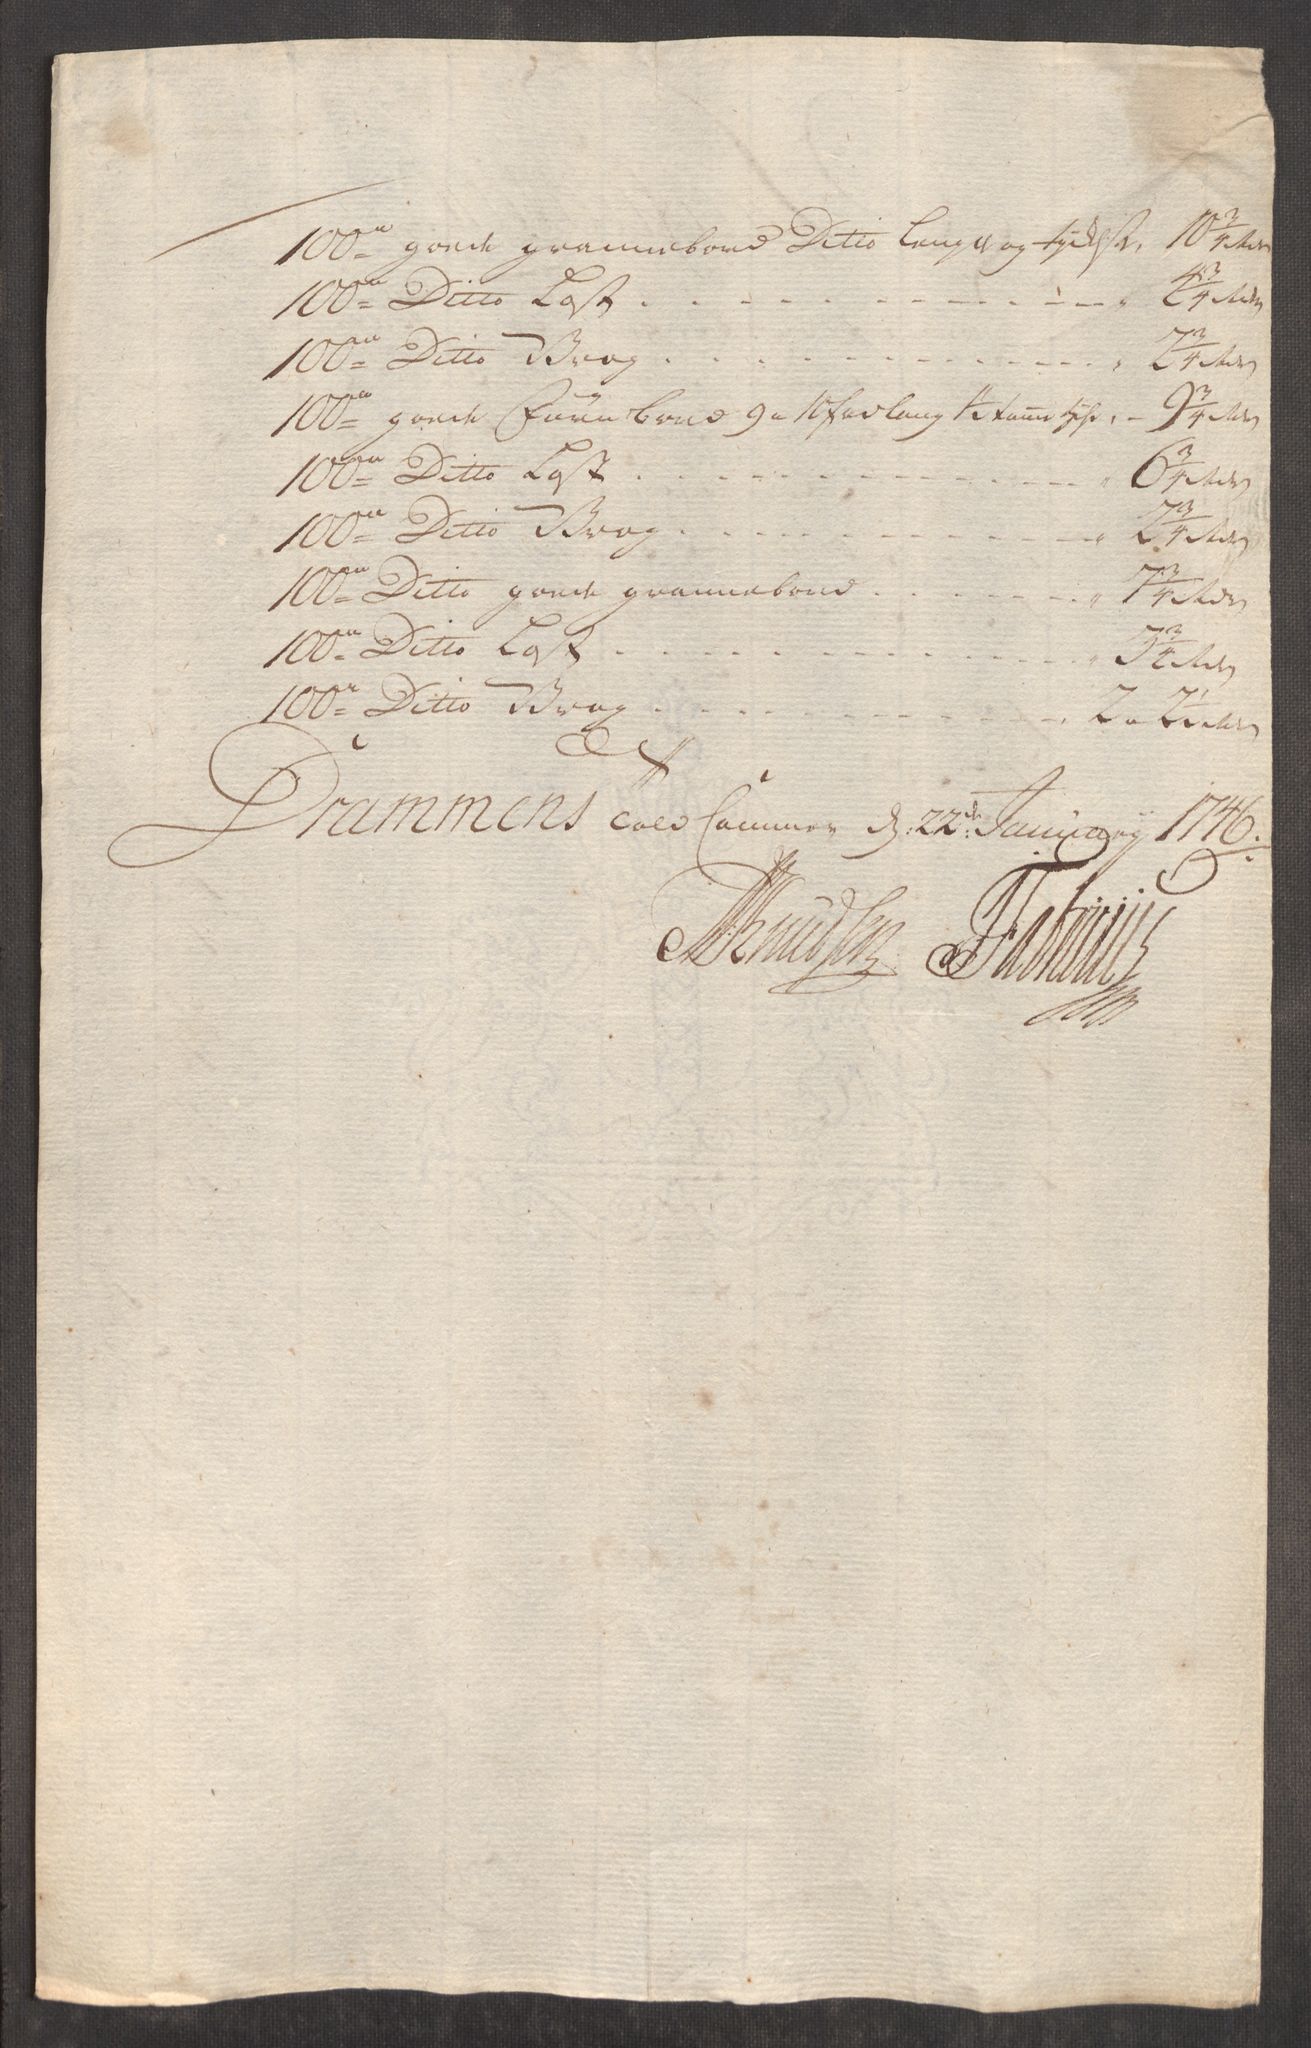 100de goede grannebord Ditto lengde og tychelse, 10 3/4 Rdr
100de Ditto Last . . . . . . . . . . 4 3/4 Rdr
100de Ditto Vrag . . . . . . . . . . 2 3/4 Rdr
100de goede Furrubord 9 a 10 fod lang 1 1/2 tome tyk, - 9 3/4 Rdr
100de Ditto Last . . . . . . . . . . 6 3/4 Rdr
100de Ditto Vrag . . . . . . . . . . 2 3/4 Rdr
100de Ditto goede grannebord . . . . . . . 7 3/4 Rdr
100de Ditto Last . . . . . . . . . . 3 3/4 Rdr
100de Ditto Vrag . . . . . . . . . . 2 a 2 1/2 Rdr
Drammens Told Cammer d: 22de January 1746.
Knudsen Fabritius